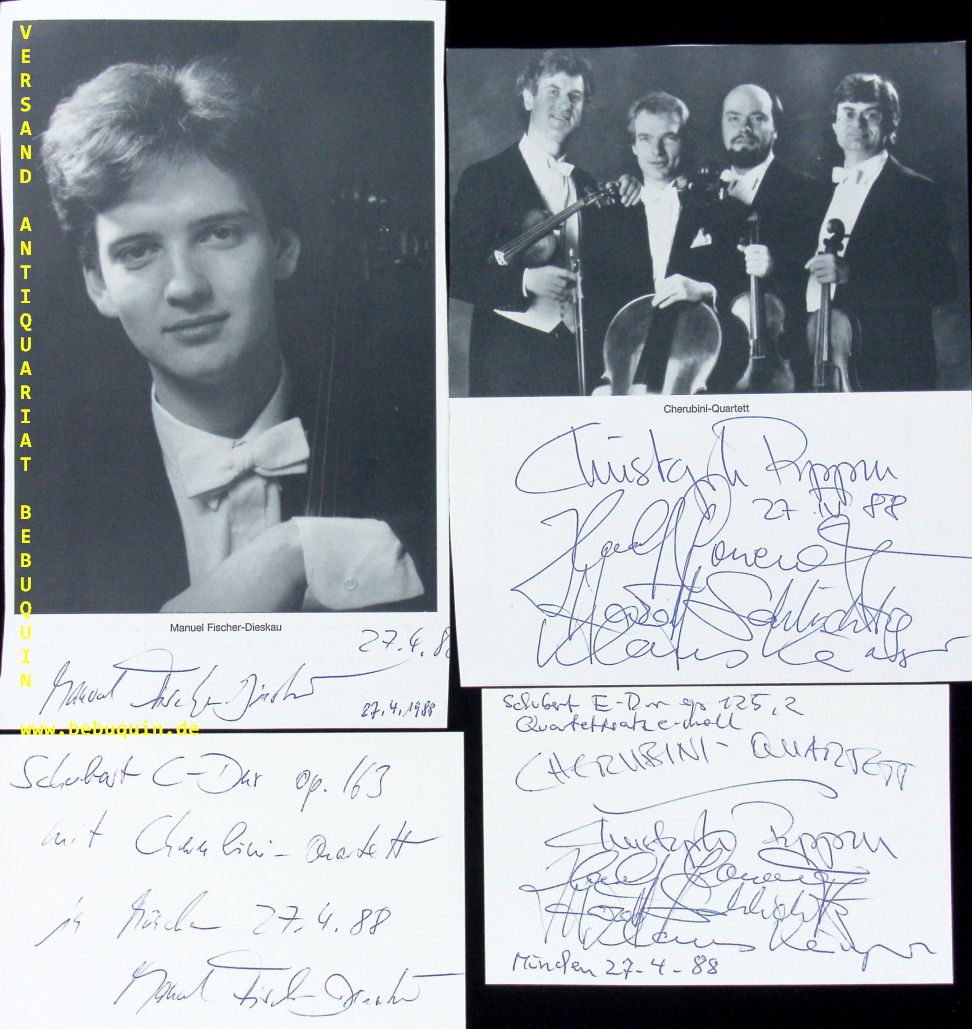 VERSAND ANTIQUARIAT BEBUQUIN
www.bebuquin.de
Manuel Fischer-Dieskau
27.4.88
Manuel Fischer-Dieskau
27.4.1988
Cherubini-Quartett
Christoph Poppen
27.IV 88
Harald Schoneweg
Hariolf Schlichtig
Klaus Kämper
Schubert C-Dur op. 163
mit Cherubini-Quartett
in München 27.4.88
Manuel Fischer-Dieskau
Schubert E-Dur op 125,2
Quartettsatz c-moll
CHERUBINI-QUARTETT
Christoph Poppen
Harald Schoneweg
Hariolf Schlichtig
Klaus Kämper
München 27-4-88